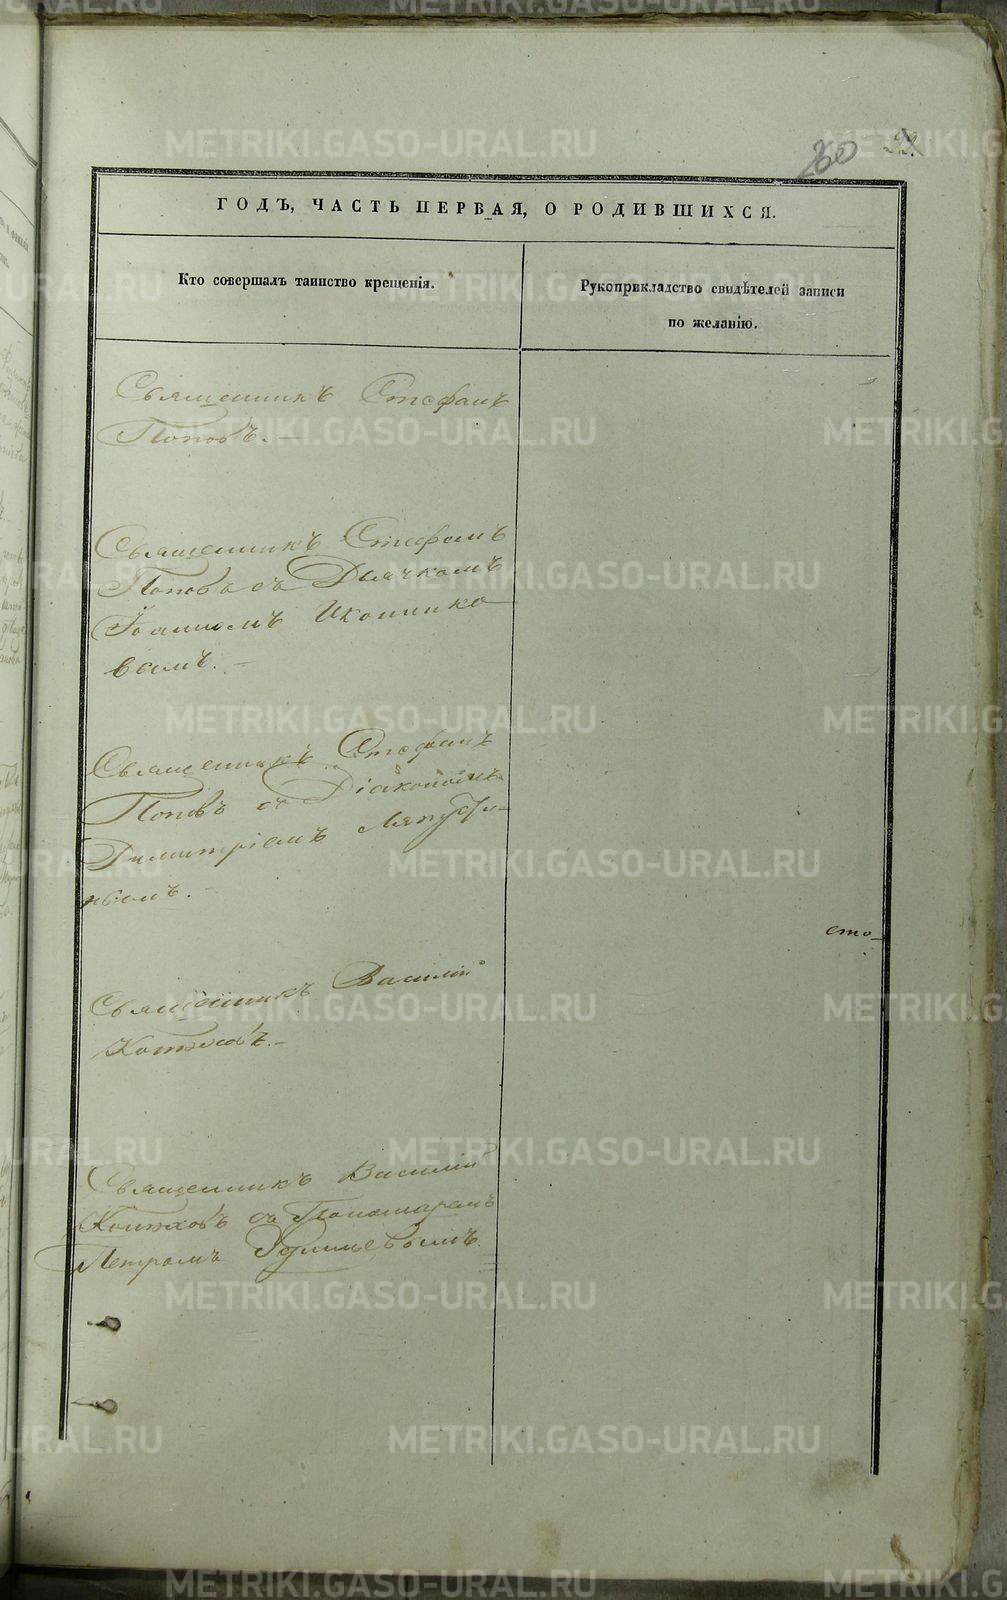 260 33.
ГОДЪ, ЧАСТЬ ПЕРВАЯ, О РОДИВШИХСЯ.
Кто совершалъ таинство крещенія.
Рукоприкладство свидѣтелей записи
по желанію.
Священникъ Стефанъ
Поповъ. —
Священникъ Стефанъ
Поповъ съ Дьячкомъ
Іоанномъ Иконнико-
вымъ. —
Священникъ Стефанъ
Поповъ съ Діакономъ
Димитріемъ Ляпусти-
нымъ. —
сто-
Священникъ Василій
Котюховъ. —
Священникъ Василій
съ Пономаремъ
Петромъ
METRIKI.GASO-URAL.RU